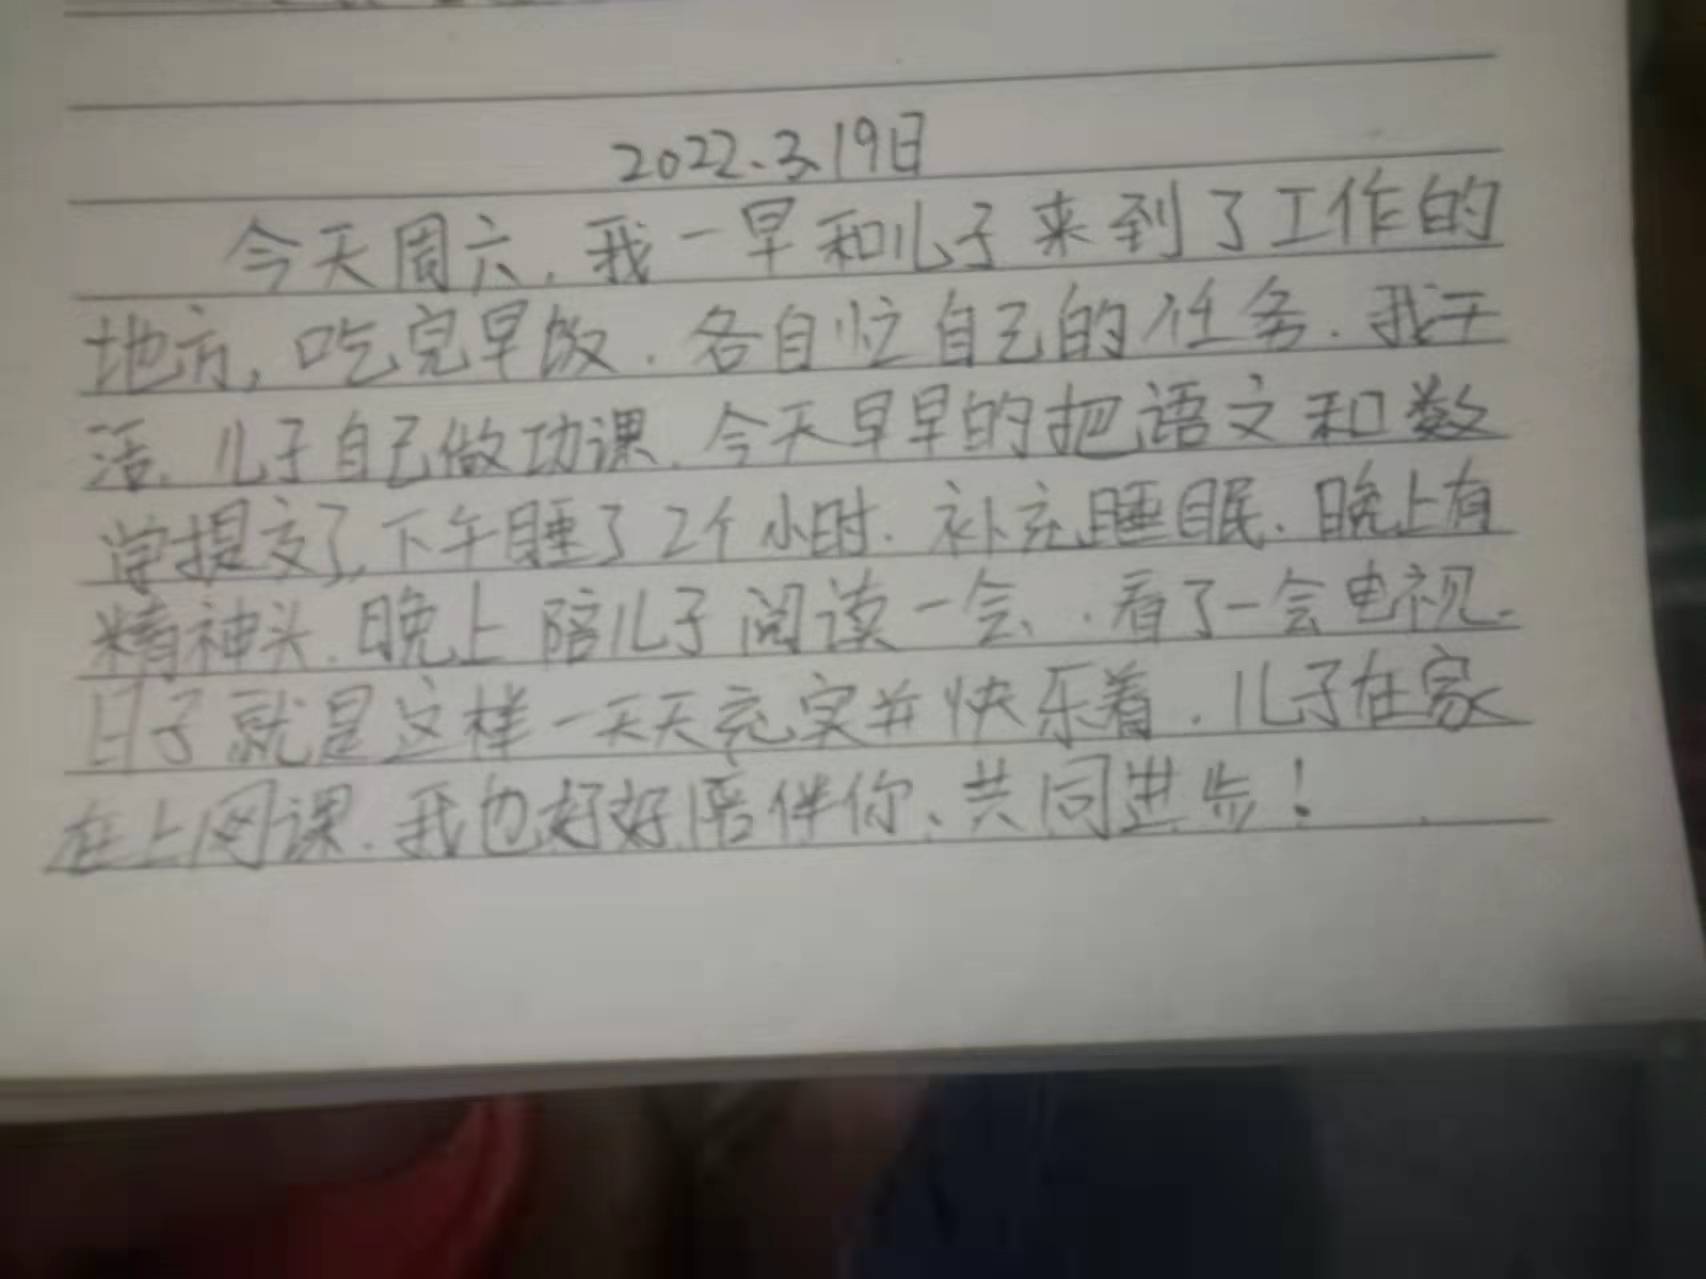 2022.3.19日
今天周六，我一早和儿子来到了工作的
地方，吃完早饭．各自忙自己的任务．我干
活．儿子自己做功课．今天早早的把语文和数
学提交了，下午睡了2个小时．补充睡眠．晚上有
精神头．晚上陪儿子阅读一会．看了一会电视．
日子就是这样一天天充实并快乐着．儿子在家
在上网课．我也好好陪伴你、共同进步！